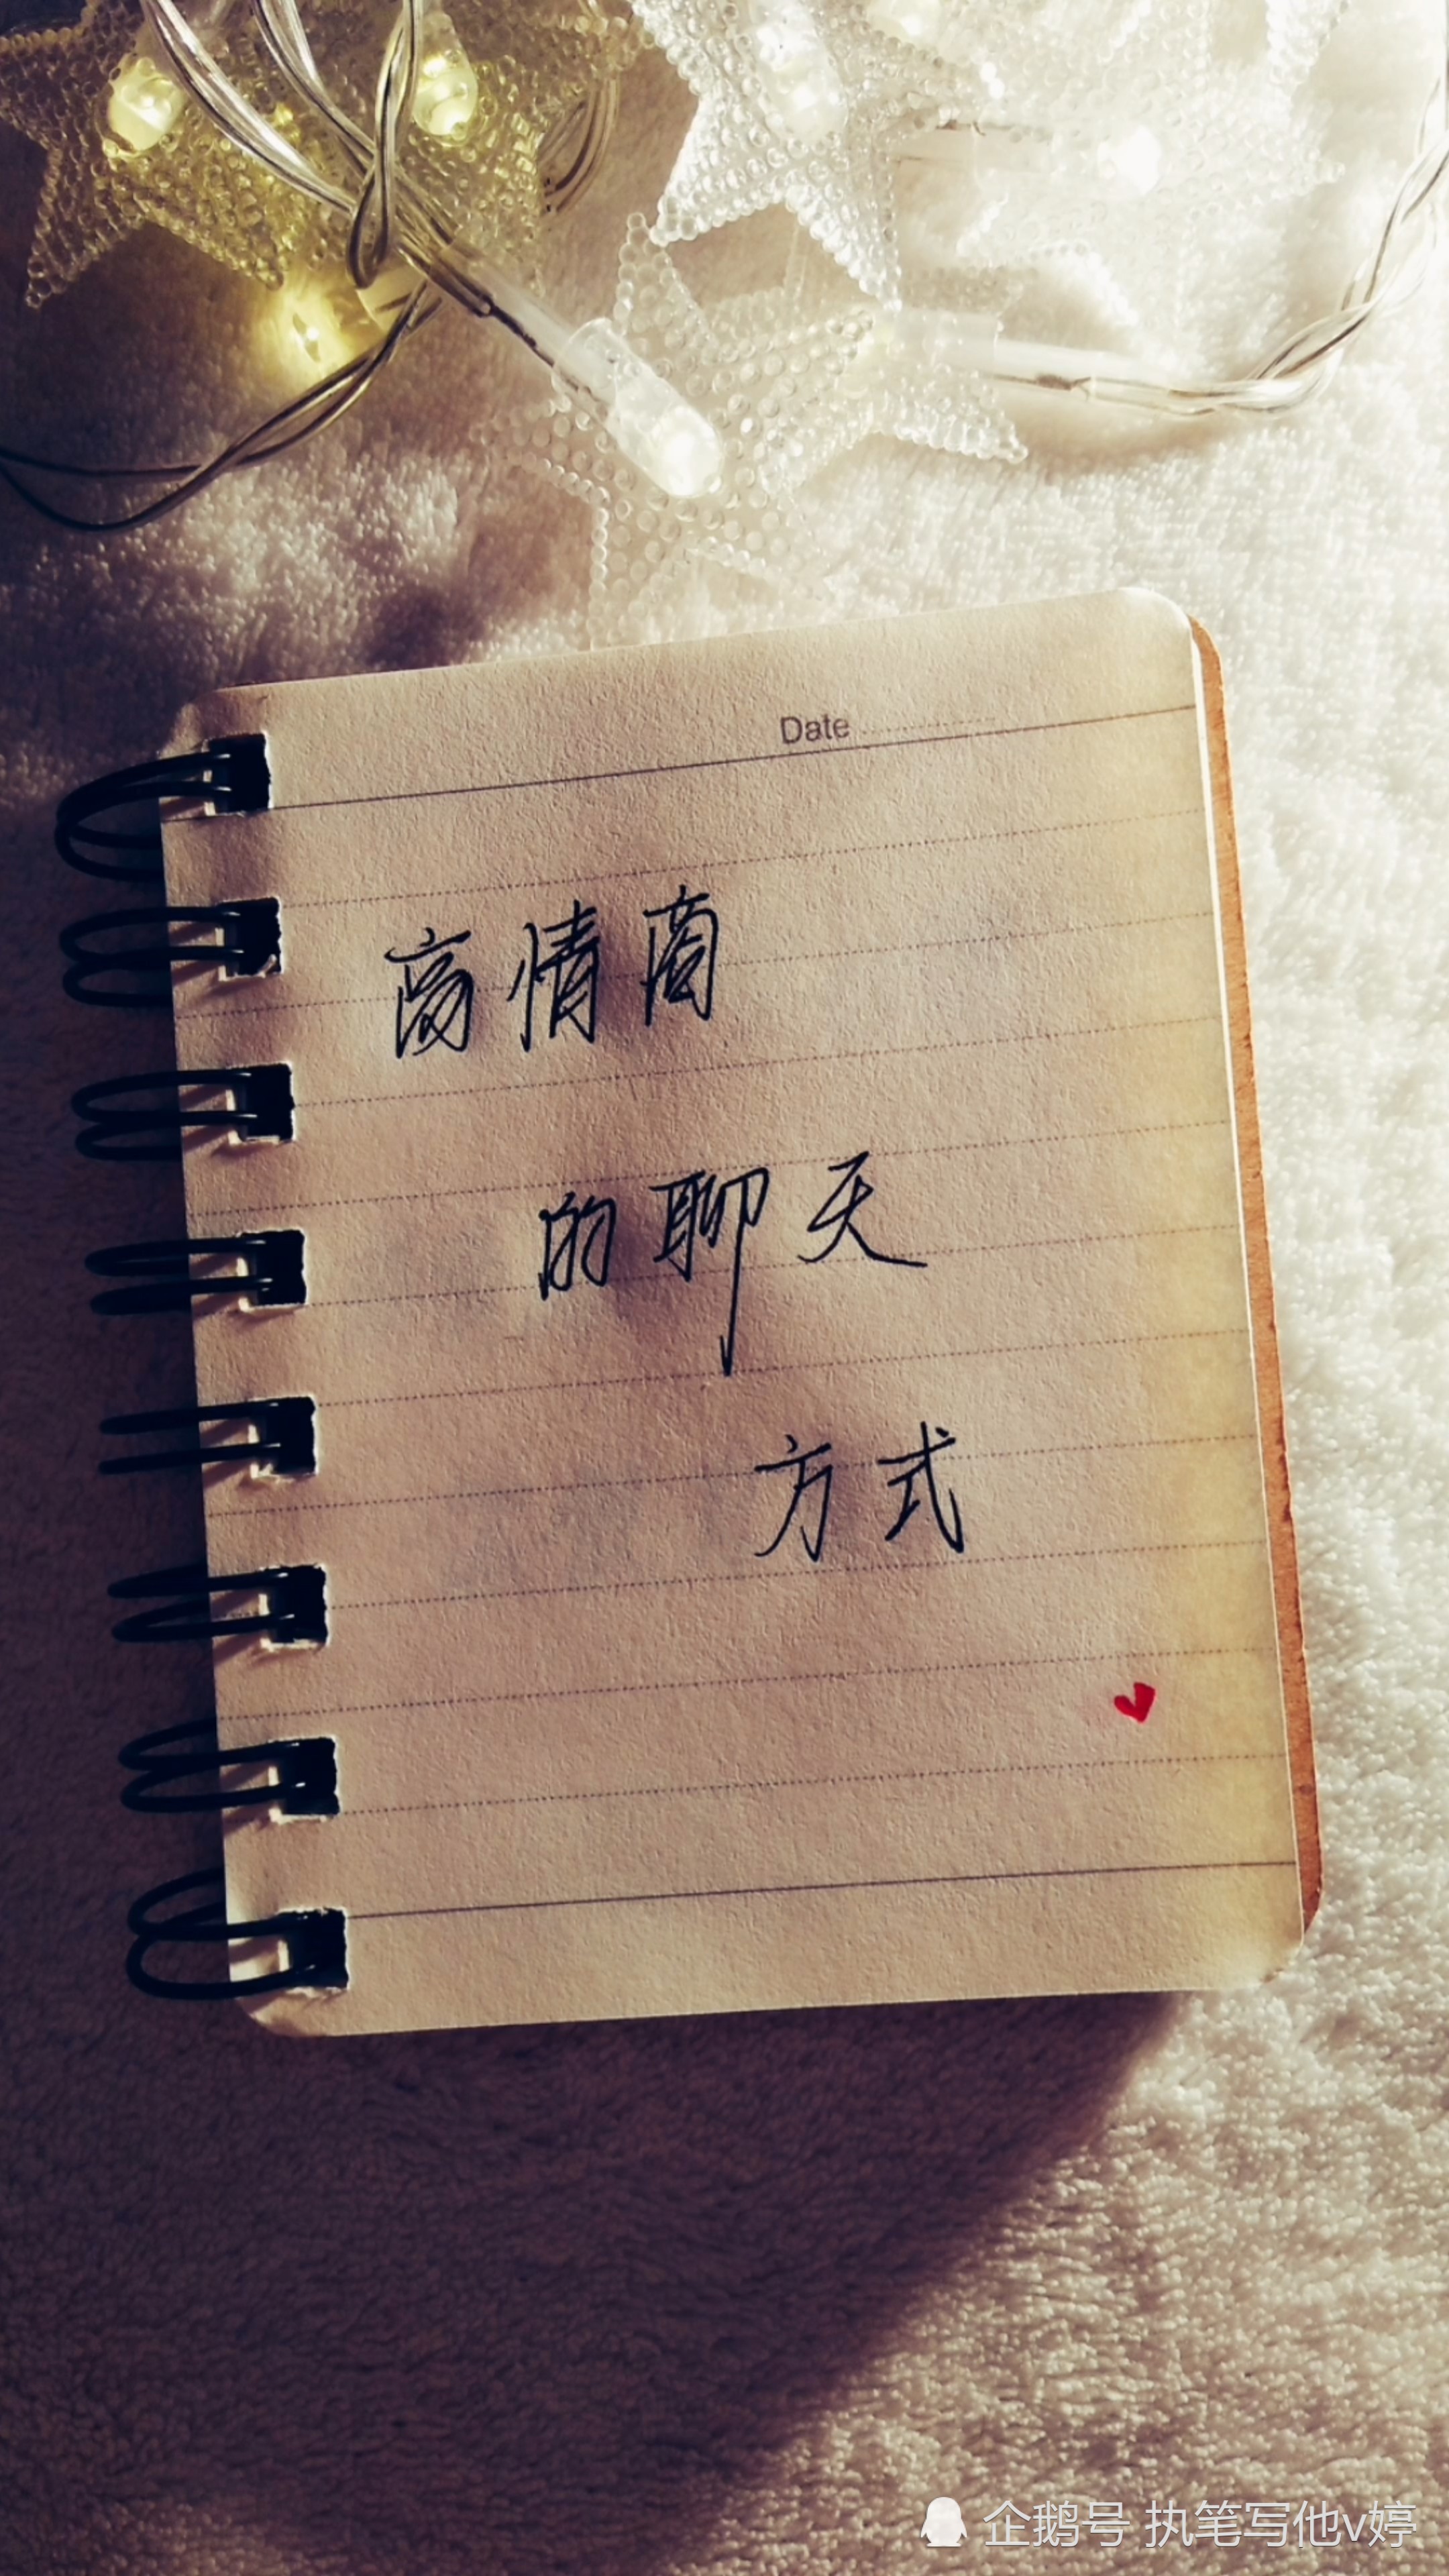 Date
高情商
的聊天
方式
企鹅号 执笔写他v婷